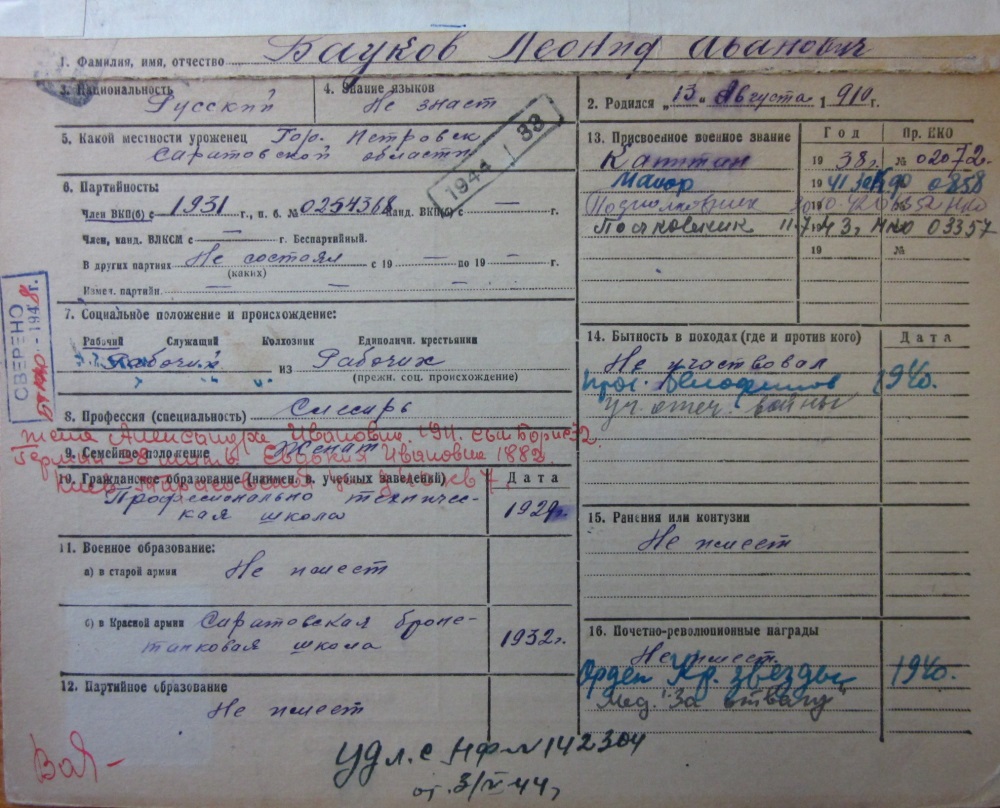 1. Фамилия, имя, отчество Бауков Леонид Иванович
3. Национальность Русский
4. Знание языков Не знает
5. Какой местности уроженец Гор. Петровск
Саратовской области
1944 / 33
6. Партийность:
Член ВКП(б) с 1931 г., п. б. № 0254368 Канд. ВКП(б) с — г.
Член, канд. ВЛКСМ с — г. Беспартийный.
В других партиях Не состоял с 19 — по 19 — г.
(каких)
Измен. партийн. — — —
7. Социальное положение и происхождение:
Рабочий Служащий Колхозник Единоличн. крестьянин
Рабочий из Рабочих
(прежн. соц. происхождение)
СВЕРЕНО
194 г.
8. Профессия (специальность) Слесарь
жена Александра Ивановна сын Борис
9. Семейное положение Женат
Евдокия Ивановна 1882
10. Гражданское образование (наимен. в. учебных заведений) Дата
Профессионально техничес-
кая школа 1929г
11. Военное образование:
а) в старой армии Не имеет
б) в Красной армии Саратовская броне-
танковая школа 1932г.
12. Партийное образование
Не имеет
2. Родился „13" Августа 1910 г.
13. Присвоенное военное звание Год Пр. НКО
Капитан 19 38г. № 02072
Майор 19 41 0858
Подполковник 19 42 №
Полковник 11.7.43г. НКО 03357
19 №
14. Бытность в походах (где и против кого) Дата
Не участвовал
прот. Белофинов 1940.
уч. отеч. войны
15. Ранения или контузии
Не имеет
16. Почетно-революционные награды
Не имеет.
Орден Кр. звезды 1940.
Мед. "За отвагу"
уд л. с НФ № 142304
от. 3/V 44г